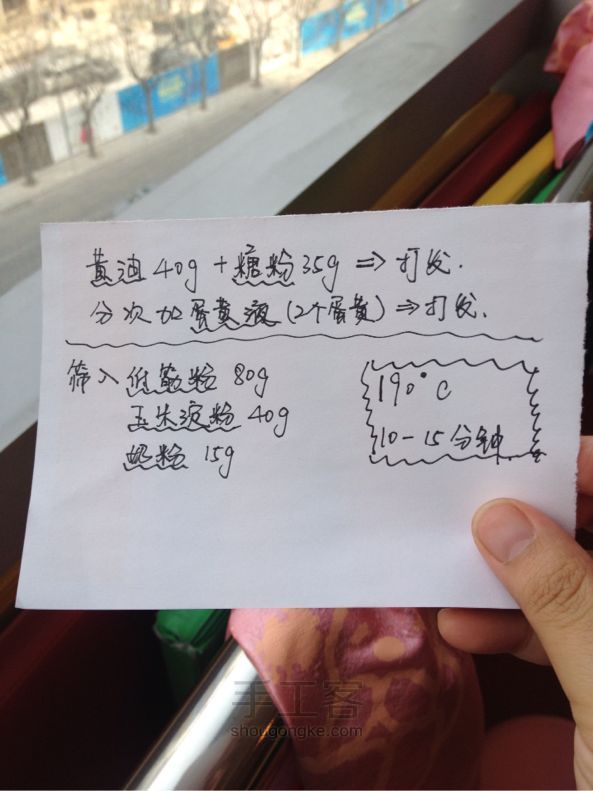 黄油40g+糖粉35g⇒打发.
分次加蛋黄液(2个蛋黄)⇒打发.
筛入低筋粉 80g
玉米淀粉 40g
奶粉 15g
190°C
10-15分钟.
手工客
shougongke.com